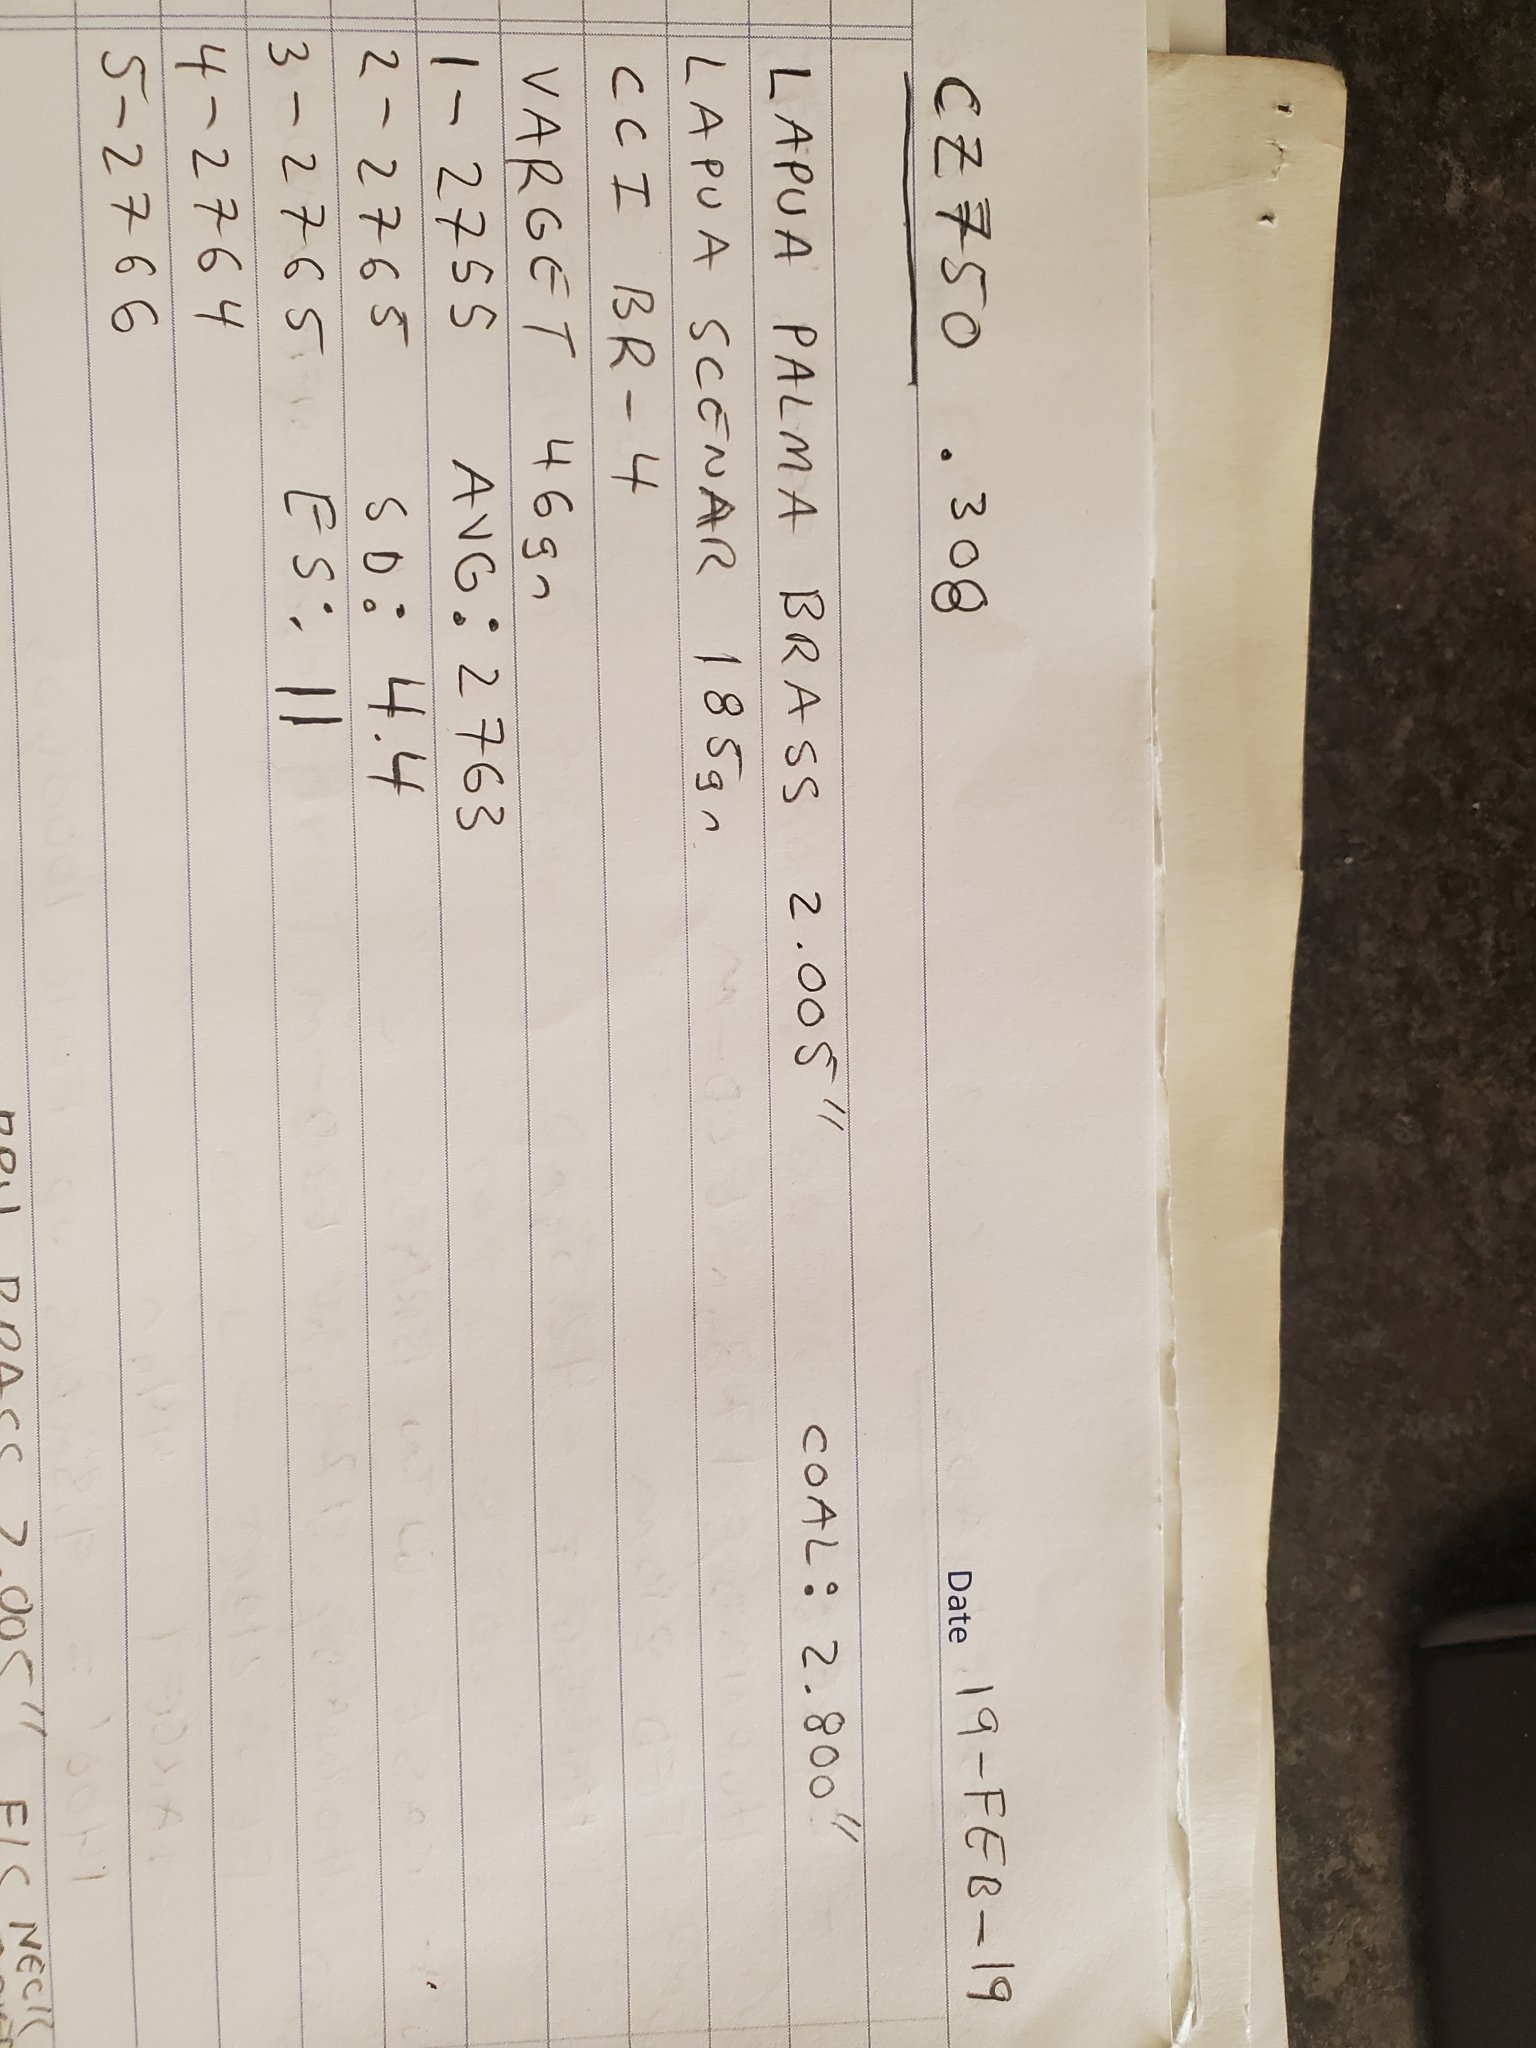 Date 19-FEB-19
CZ750 .308
LAPUA PALMA BRASS 2.005" COAL: 2.800"
LAPUA SCENAR 185gn
CCI BR-4
VARGET 46gn
1-2755 AVG: 2763
2-2765 SD: 4.4
3-2765 ES: 11
4-2764
5-2766
BRASS 2.005" NECK